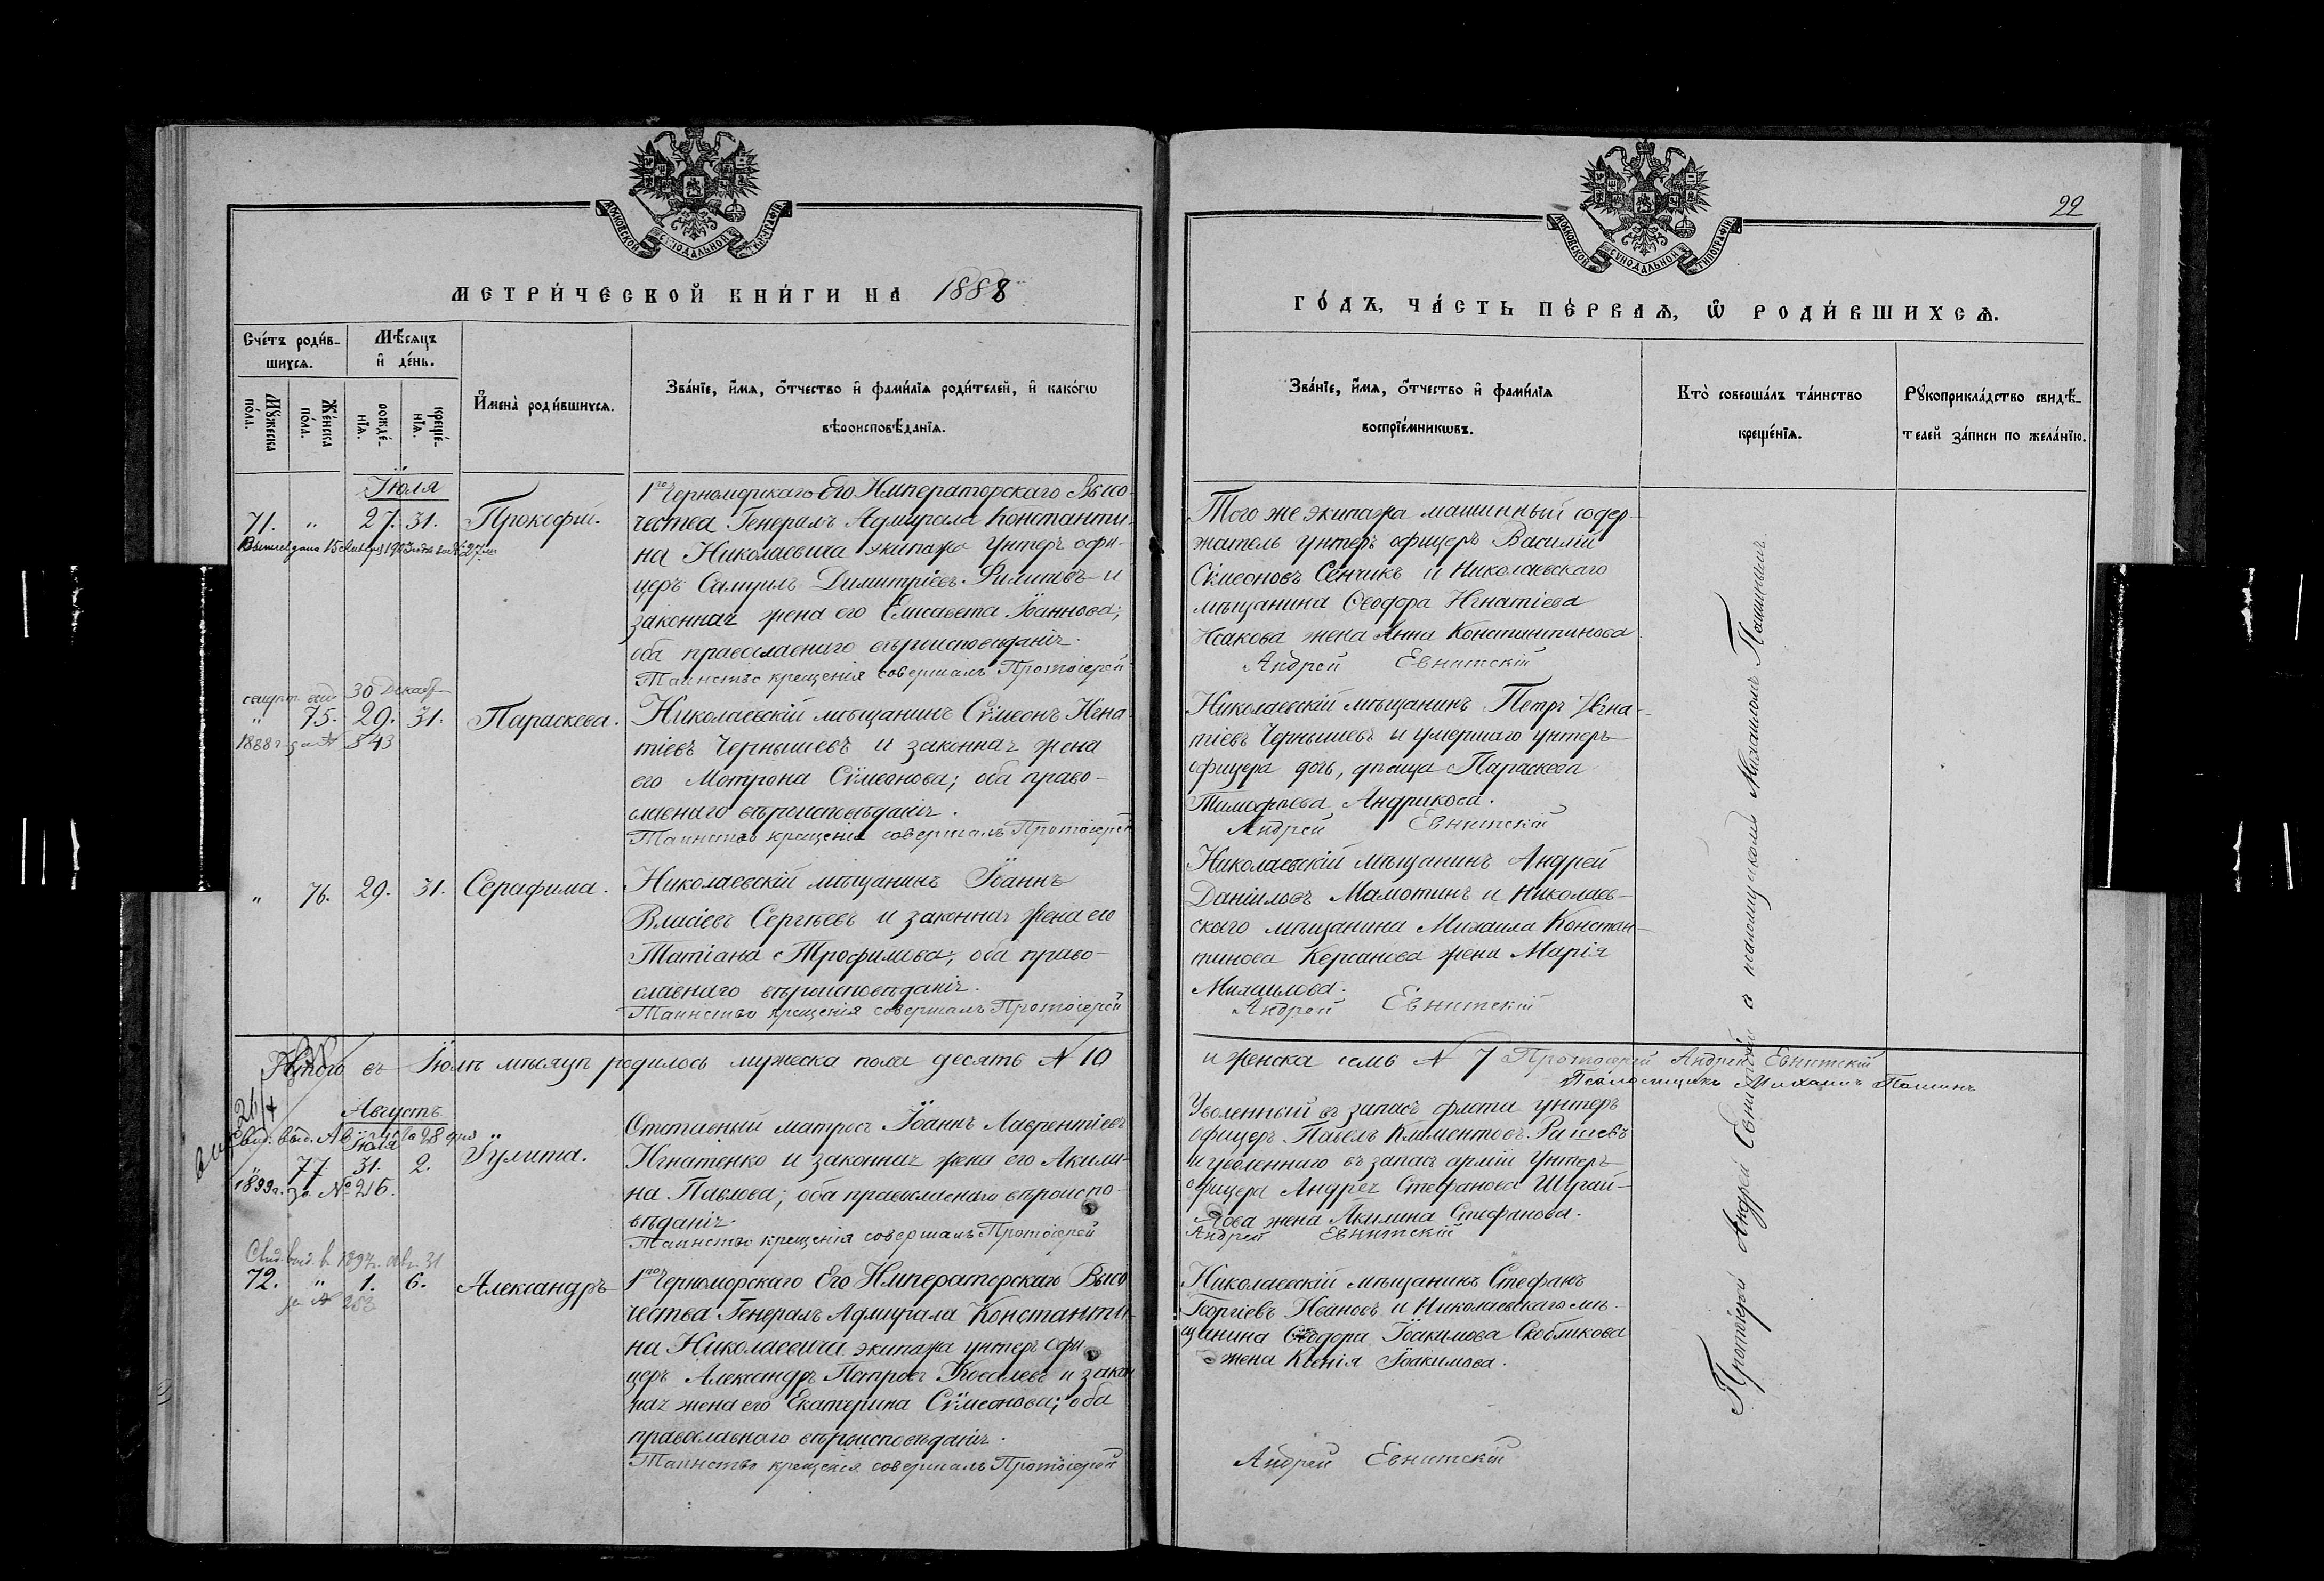 МОСКОВСКОЙ СУНОДАЛЬНОЙ ТИПОГРАФІИ
МЕТРИ́ЧЕСКОЙ КНИ́ГИ НА 1888
Сче́тъ роди́в-
шихсѧ.
Мѣ́сѧцъ
и҆ де́нь.
Мꙋ́жеска
по́ла.
Же́нска
по́ла.
рожде́-
нїѧ.
креще́-
нїѧ.
И҆мена̀ роди́вшихсѧ.
Зва́нїе, и҆́мѧ, ѻ҆́тчество и҆ фами́лїѧ роди́телей, и҆ како́гѡ
вѣроисповѣ́данїѧ.
Іюля
71. " 27. 31. Прокофій.
1го Черноморскаго Его Императорскаго Высо-
чества Генералъ Адмирала Константи-
на Николаевича экипажа унтеръ офи-
церъ Самуилъ Димитріевъ Филиповъ и
законная жена его Елисавета Іоаннова;
оба православнаго вѣроисповѣданія.
Таинство крещенія совершалъ Протоіерей
30 Декабр
" 75. 29. 31. Параскева.
1888 г. за № 843
Николаевскій мѣщанинъ Сѵмеонъ Игна-
тіевъ Чернышевъ и законная жена
его Мотрона Сѵмеонова; оба право-
славнаго вѣроисповѣданія.
Таинство крещенія совершалъ Протоіерей
" 76. 29. 31. Серафима.
Николаевскій мѣщанинъ Іоаннъ
Власіевъ Сергѣевъ и законная жена его
Татіана Трофимова; оба право-
славнаго вѣроисповѣданія.
Таинство крещенія совершалъ Протоіерей
Итого въ Іюлѣ мѣсяцѣ родилось мужеска пола десять № 10
Августъ
Свид. выд. Августа 28 дня
Іюля
77. 31. 2. Іулита.
1899 г. за № 216.
Отставный матросъ Іоаннъ Лаврентіевъ
Игнатенко и законная жена его Акили-
на Павлова; оба православнаго вѣроиспо-
вѣданія.
Таинство крещенія совершалъ Протоіерей
Свид. выд. в 1897 г. авг. 31
72. " 1. 6. Александръ
за № 253
1го Черноморскаго Его Императорскаго Высо-
чества Генералъ Адмирала Константи-
на Николаевича экипажа унтеръ офи-
церъ Александръ Петровъ Ковалевъ и закон
ная жена его Екатерина Сѵмеонова; оба
православнаго вѣроисповѣданія.
Таинство крещенія совершалъ Протоіерей
22
МОСКОВСКОЙ СУНОДАЛЬНОЙ ТИПОГРАФІИ
ГО́ДЪ, ЧА́СТЬ ПЕ́РВАѦ, Ѿ РОДИ́ВШИХСѦ.
Зва́нїе, и҆́мѧ, ѻ҆́тчество и҆ фами́лїѧ
воспрїе́мникѡвъ.
Кто̀ соверша́лъ та́инство
креще́нїѧ.
Рꙋкоприкла́дство свидѣ́-
телей за́писи по жела́нїю.
Того же экипажа машинный содер-
жатель унтеръ офицеръ Василій
Сѵмеоновъ Сенчикъ и Николаевскаго
мѣщанина Ѳеодора Игнатіева
Исакова жена Анна Константинова
Андрей Евнитскій
Николаевскій мѣщанинъ Петръ Игна-
тіевъ Чернышевъ и умершаго унтеръ
офицера дочь, дѣвица Параскева
Тимофѣева Андрикова.
Андрей Евнитскій
Николаевскій мѣщанинъ Андрей
Даніиловъ Мамотинъ и Николаев-
скаго мѣщанина Михаила Констан-
тинова Керсанова жена Марія
Михаилова.
Андрей Евнитскій
и женска семь № 7 Протоіерей Андрей Евнитскій
Псаломщикъ Михаилъ Пашинъ
Уволенный въ запасъ флота унтеръ
офицеръ Павелъ Климентовъ Рашевъ
и уволеннаго въ запасъ арміи унтеръ
офицера Андрея Стефанова Шугай-
лова жена Акилина Стефанова.
Андрей Евнитскій
Николаевскій мѣщанинъ Стефанъ
Георгіевъ Ивановъ и Николаевскаго мѣ-
щанина Ѳеодора Іоакимова Скобликова
жена Ксенія Іоакимова.
Андрей Евнитскій
Протоіерей Андрей Евнитскій с псаломщикомъ Михаиломъ Пашинымъ.